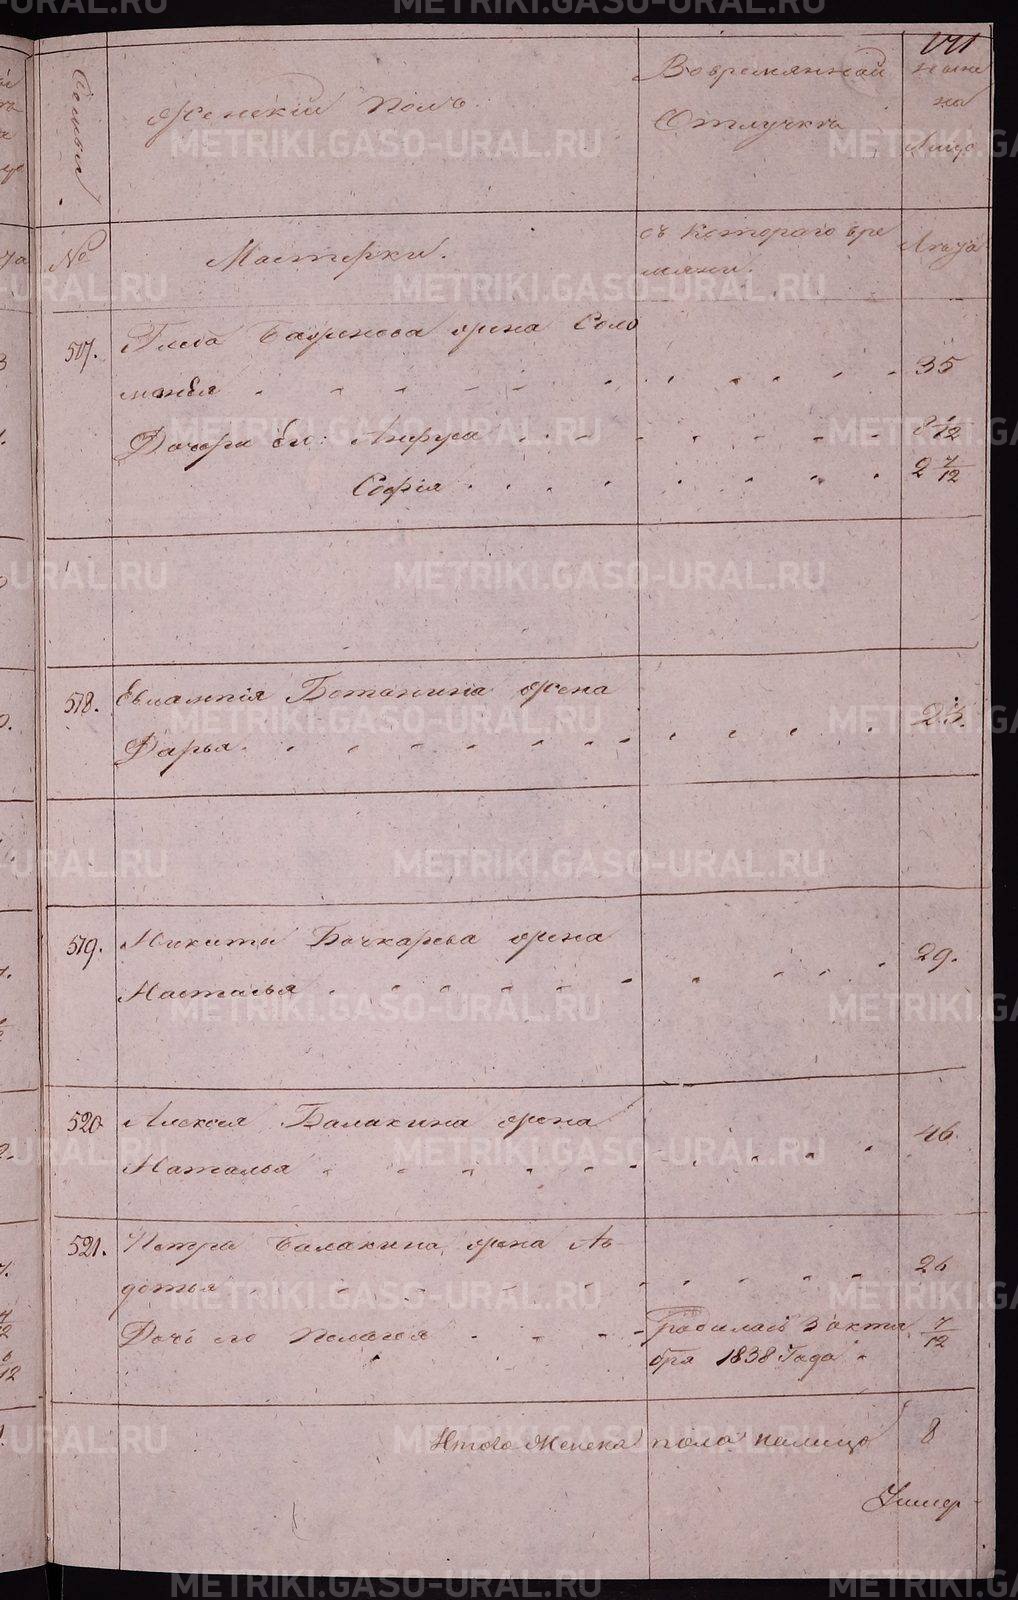 Семьи
Женскій Полъ.
Вовремянной
Отлучкѣ
ныне
на
Лицо
№
Мастерки.
съ котораго вре
мяни.
Лѣта
517.
Глеба жена Соло
монея 35
Дочери Анфуса 8
София 2 7/12
518.
Евлампія Ботанина жена
Дарья 25.
519.
Никиты Бочкарева жена
Насталья 29.
520
Алексея Балакина жена
Наталья 46.
521.
Петра Балакина жена Ав-
дотья 26
Дочь Пелагея Родилась 3 октя 7/12
бря 1838 Года
Итого Женска пола налицо 8
METRIKI.GASO-URAL.RU